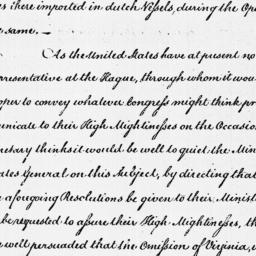 s there imported in dutch Vessels, during the Ope
same. —
As the United States have at present no
presentative at the Hague, through whom it wou
oper to convey whatever Congress might think pr
unicate to their High Mightinesses on the Occasion
retary thinks it would be well to quiet the Min
ates General on this Subject, by directing that
aforegoing Resolutions be given to their Minist
be requested to assure their High Mightinesses, th
well persuaded that the Omission of Virginia,